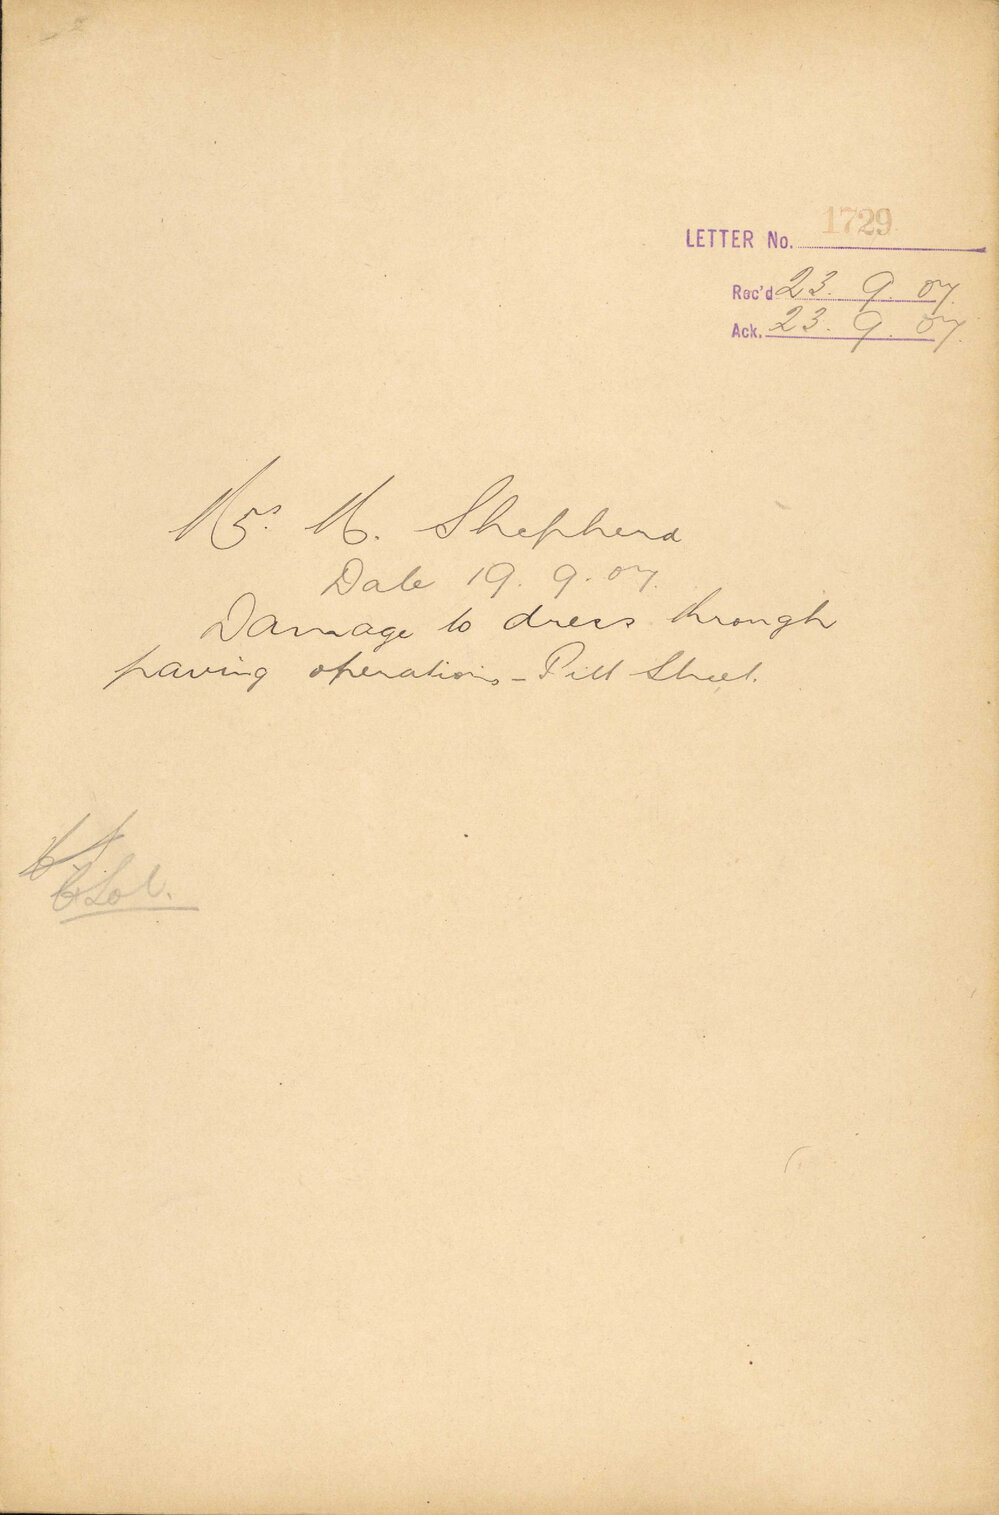 LETTER No. 1729
Rec'd 23. 9. 07.
Ack. 23. 9. 07.
Mrs. M. Shepherd
Date 19. 9. 07.
Damage to dress through
paving operations - Pitt Street.
C Sol.